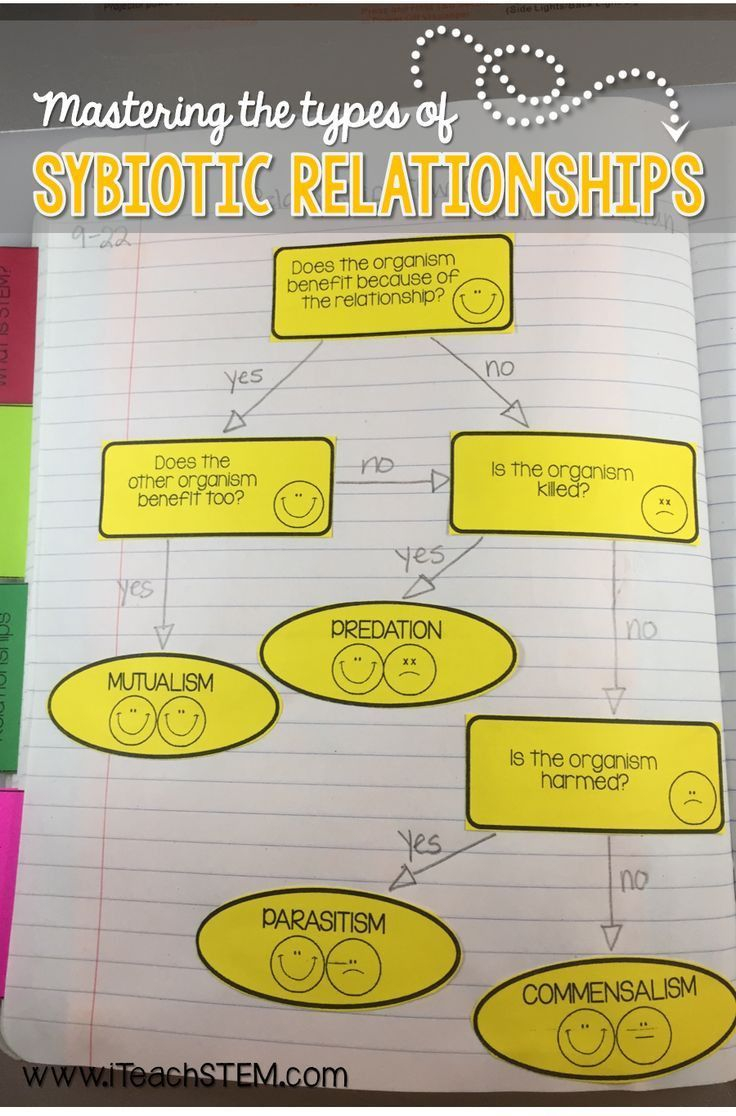 (Side Lights/Back Light
Mastering the types of
SYBIOTIC RELATIONSHIPS
9-22
What is STEM?
Does the organism
benefit because of
the relationship?
yes
no
Does the
other organism
benefit too?
no
Is the organism
killed?
yes
yes
no
PREDATION
MUTUALISM
Relationships
Is the organism
harmed?
yes
no
PARASITISM
COMMENSALISM
www.iTeachSTEM.com